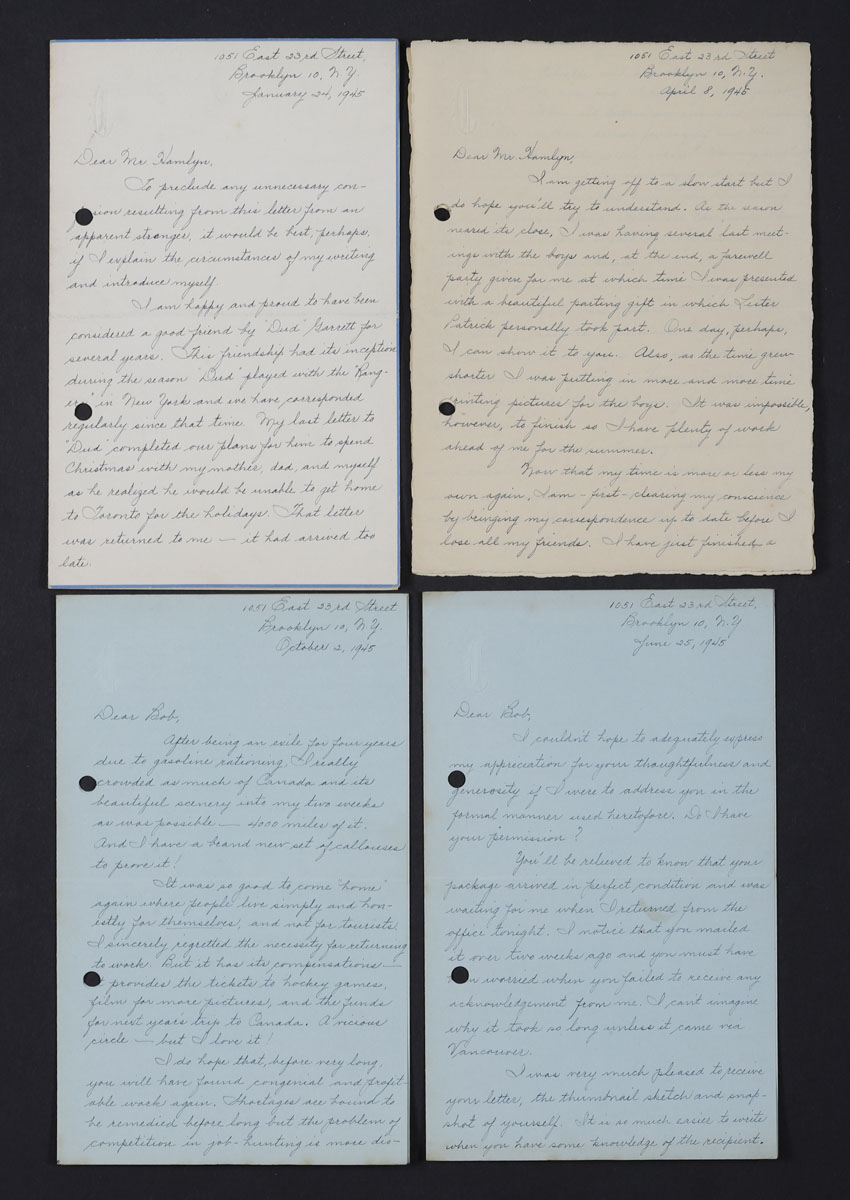 1051 East 23rd Street,
Brooklyn 10, N.Y.
January 24, 1945
Dear Mr Hamlyn,
To preclude any unnecessary con-
sion resulting from this letter from an
apparent stranger, it would be best, perhaps,
if I explain the circumstances of my writing
and introduce myself.
I am happy and proud to have been
considered a good friend by "Dud" Garrett for
several years. This friendship had its inception
during the season "Dud" played with the "Rang-
ers" in New York and we have corresponded
regularly since that time. My last letter to
"Dud" completed our plans for him to spend
Christmas with my mother, dad, and myself
as he realized he would be unable to get home
to Toronto for the holidays. That letter
was returned to me — it had arrived too
late.
1051 East 23rd Street
Brooklyn 10, N.Y.
April 8, 1945
Dear Mr. Hamlyn,
I am getting off to a slow start but I
do hope you'll try to understand. As the season
neared its close, I was having several last meet-
ings with the boys and, at the end, a farewell
party given for me at which time I was presented
with a beautiful parting gift in which Lester
Patrick personally took part. One day, perhaps,
I can show it to you. Also, as the time grew
shorter I was putting in more and more time
printing pictures for the boys. It was impossible,
however, to finish so I have plenty of work
ahead of me for the summer.
Now that my time is more or less my
own again, I am - first - clearing my conscience
by bringing my correspondence up to date before I
lose all my friends. I have just finished a
1051 East 23rd Street
Brooklyn 10, N.Y.
October 2, 1945
Dear Bob,
After being an exile for four years
due to gasoline rationing I really
crowded as much of Canada and its
beautiful scenery into my two weeks
as was possible — 4000 miles of it.
And I have a brand new set of callouses
to prove it!
It was so good to come "home"
again where people live simply and hon-
estly for themselves, and not for tourists.
I sincerely regretted the necessity for returning
to work. But it has its compensations —
provides the tickets to hockey games,
film for more pictures, and the funds
for next year's trip to Canada. A vicious
circle — but I love it!
I do hope that, before very long,
you will have found congenial and profit-
able work again. Shortages are bound to
be remedied before long but the problem of
competition in job-hunting is more dis-
1051 East 23rd Street,
Brooklyn 10, N.Y
June 25, 1945
Dear Bob,
I couldn't hope to adequately express
my appreciation for your thoughtfulness and
generosity if I were to address you in the
formal manner used heretofore. Do I have
your permission?
You'll be relieved to know that your
package arrived in perfect condition and was
waiting for me when I returned from the
office tonight. I notice that you mailed
it over two weeks ago and you must have
worried when you failed to receive any
acknowledgement from me. I can't imagine
why it took so long unless it came via
Vancouver.
I was very much pleased to receive
your letter, the thumbnail sketch and snap-
shot of yourself. It is so much easier to write
when you have some knowledge of the recipient.